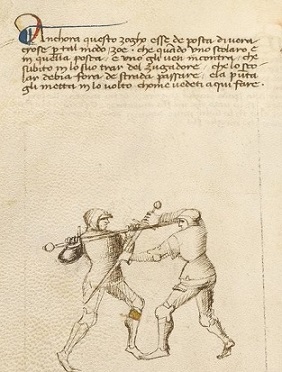 Anchora questo zogho esse de posta di vera
crose p tal modo, zoe, che quādo uno scolaro è
in quella posta, e uno gli ven incontra, che
subito in lo suo trar del zugadore, che lo sco-
lar debia fora de strada passare, e la punta
gli metta in lo volto chome vedeti aqui fare.